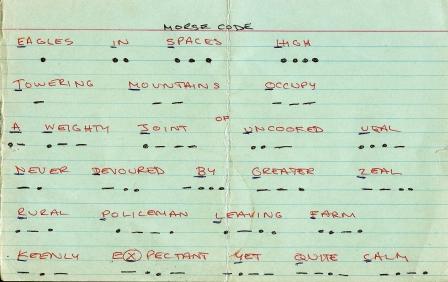 MORSE CODE
EAGLES IN SPACES HIGH
• •• ••• ••••
TOWERING MOUNTAINS OCCUPY
— — — — — —
A WEIGHTY JOINT OF UNCOOKED VEAL
•— •— — •— — — ••— •••—
NEVER DEVOURED BY GREATER ZEAL
—• —•• —••• — —• — —••
RURAL POLICEMAN LEAVING FARM
•—• •— —• •—•• ••—•
KEENLY EXPECTANT YET QUITE CALM
—•— —••— —•— — — —•— —•—•